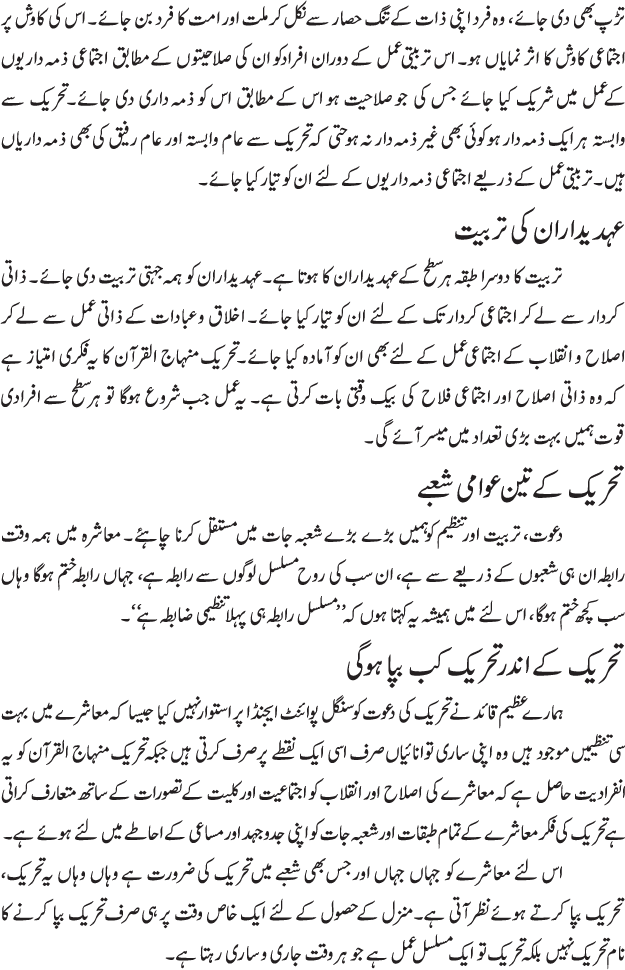 تڑپ بھی دی جائے، وہ فرد اپنی ذات کے تنگ حصار سے نکل کر ملت اور امت کا فرد بن جائے۔ اس کی کاوش پر
اجتماعی کاوش کا اثر نمایاں ہو۔ اس تربیتی عمل کے دوران افراد کو ان کی صلاحیتوں کے مطابق اجتماعی ذمہ داریوں
کے عمل میں شریک کیا جائے جس کی جو صلاحیت ہو اس کے مطابق اس کو ذمہ داری دی جائے۔ تحریک سے
وابستہ ہر ایک ذمہ دار ہو کوئی بھی غیر ذمہ دار نہ ہو حتی کہ تحریک سے عام وابستہ اور عام رفیق کی بھی ذمہ داریاں
ہیں۔ تربیتی عمل کے ذریعے اجتماعی ذمہ داریوں کے لئے ان کو تیار کیا جائے۔
عہدیداران کی تربیت
تربیت کا دوسرا طبقہ ہر سطح کے عہدیداران کا ہوتا ہے۔ عہدیداران کو ہمہ جہتی تربیت دی جائے۔ ذاتی
کردار سے لے کر اجتماعی کردار تک کے لئے ان کو تیار کیا جائے۔ اخلاق و عبادات کے ذاتی عمل سے لے کر
اصلاح و انقلاب کے اجتماعی عمل کے لئے بھی ان کو آمادہ کیا جائے۔ تحریک منہاج القرآن کا یہ فکری امتیاز ہے
کہ وہ ذاتی اصلاح اور اجتماعی فلاح کی بیک وقتی بات کرتی ہے۔ یہ عمل جب شروع ہوگا تو ہر سطح سے افرادی
قوت ہمیں بہت بڑی تعداد میں میسر آئے گی۔
تحریک کے تین عوامی شعبے
دعوت، تربیت اور تنظیم کو ہمیں بڑے بڑے شعبہ جات میں مستقل کرنا چاہئے۔ معاشرہ میں ہمہ وقت
رابطہ ان ہی شعبوں کے ذریعے سے ہے، ان سب کی روح مسلسل لوگوں سے رابطہ ہے، جہاں رابطہ ختم ہوگا وہاں
سب کچھ ختم ہوگا، اس لئے میں ہمیشہ یہ کہتا ہوں کہ ’’مسلسل رابطہ ہی پہلا تنظیمی ضابطہ ہے‘‘۔
تحریک کے اندر تحریک کب بپا ہوگی
ہمارے عظیم قائد نے تحریک کی دعوت کو سنگل پوائنٹ ایجنڈا پر استوار نہیں کیا جیسا کہ معاشرے میں بہت
سی تنظیمیں موجود ہیں وہ اپنی ساری توانائیاں صرف اسی ایک نقطے پر صرف کرتی ہیں جبکہ تحریک منہاج القرآن کو یہ
انفرادیت حاصل ہے کہ معاشرے کی اصلاح اور انقلاب کو اجتماعیت اور کلیت کے تصورات کے ساتھ متعارف کراتی
ہے تحریک کی فکر معاشرے کے تمام طبقات اور شعبہ جات کو اپنی جدوجہد اور مساعی کے احاطے میں لئے ہوئے ہے۔
اس لئے معاشرے کو جہاں جہاں اور جس بھی شعبے میں تحریک کی ضرورت ہے وہاں وہاں یہ تحریک،
تحریک بپا کرتے ہوئے نظر آتی ہے۔ منزل کے حصول کے لئے ایک خاص وقت پر ہی صرف تحریک بپا کرنے کا
نام تحریک نہیں بلکہ تحریک تو ایک مسلسل عمل ہے جو ہر وقت جاری و ساری رہتا ہے۔